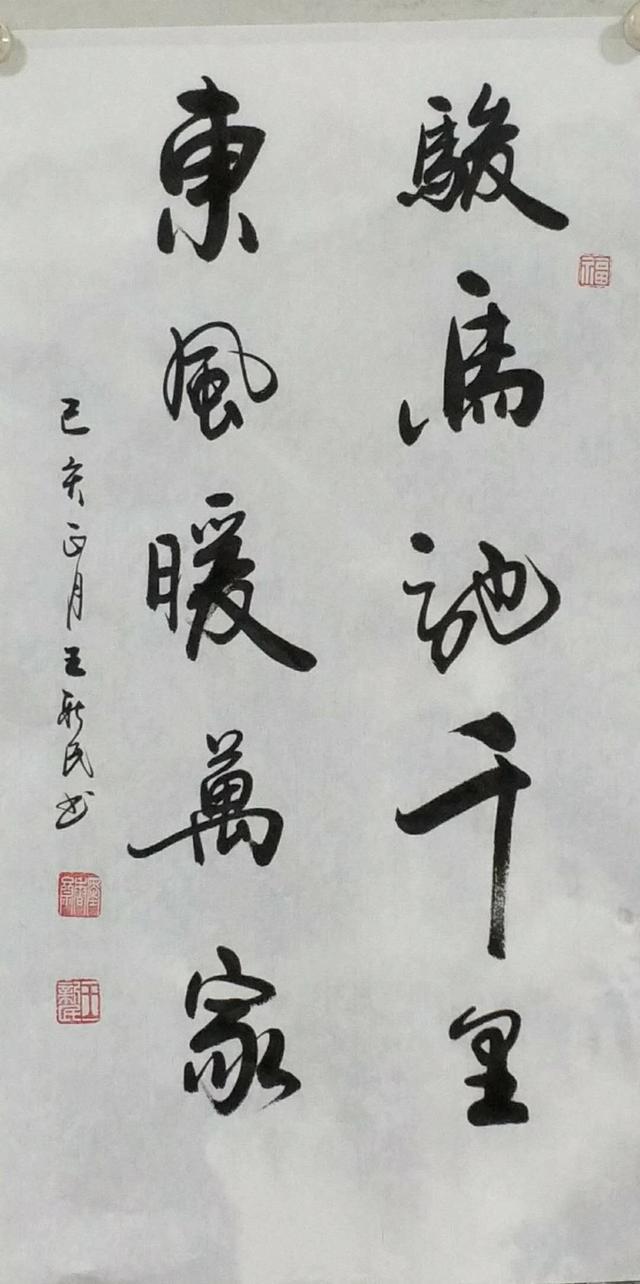 駿馬馳千里
東風暖萬家
己亥正月王新民书
福
王新民